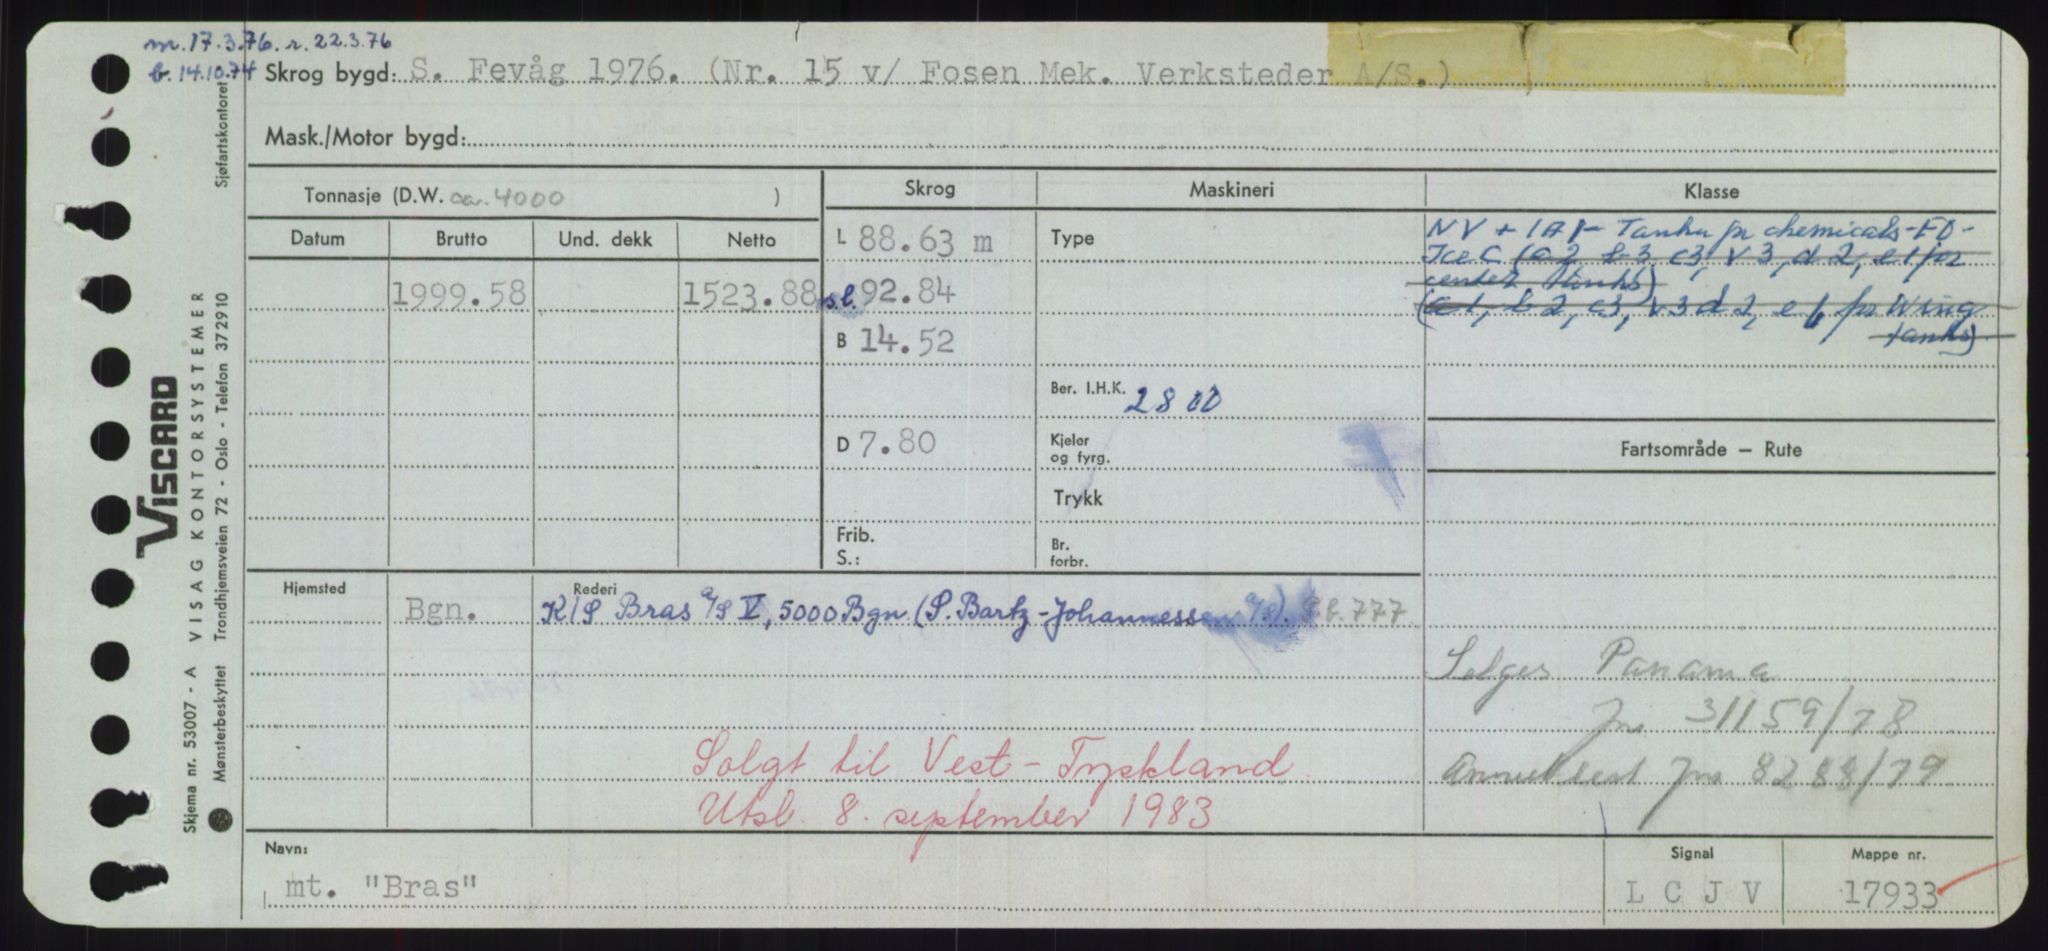 m. 17.3.76. r. 22.3.76
b. 14.10.74
Skrog bygd: S. Fevåg 1976. (Nr. 15 v/ Fosen Mek. Verksteder A/S.)
Mask./Motor bygd:
Tonnasje (D.W. ca. 4000 )
Skrog
Maskineri
Klasse
Datum
Brutto
Und. dekk
Netto
L 88.63 m
Type
NV + 1A1- Tanker for chemicals-EO-
Ice C (a2 b3, c3, v3, d2, e1 for
center tanks)
(a1, b2, c3, v3 d2, e1, for Wing
tanks)
1999.58
1523.88
s.l. 92.84
B 14.52
Ber. I.H.K. 2800
D 7.80
Kjeler
og fyrg.
Fartsområde – Rute
Trykk
Frib.
S.:
Br.
forbr.
Hjemsted
Rederi
Bgn.
K/S Bras A/S V, 5000 Bgn (S. Bartz-Johannessen A/S). P.b. 777
Selges Panama
Jnr 31159/78
Annullert Jnr 8288/79
Solgt til Vest-Tyskland
Utsl. 8. september 1983
Navn:
mt. "Bras"
Signal
L C J V
Mappe nr.
17933
VISCARD
VISAG KONTORSYSTEMER
Skjema nr. 53007 - A
Mønsterbeskyttet
Trondhjemsveien 72 - Oslo - Telefon 372910
Sjøfartskontoret